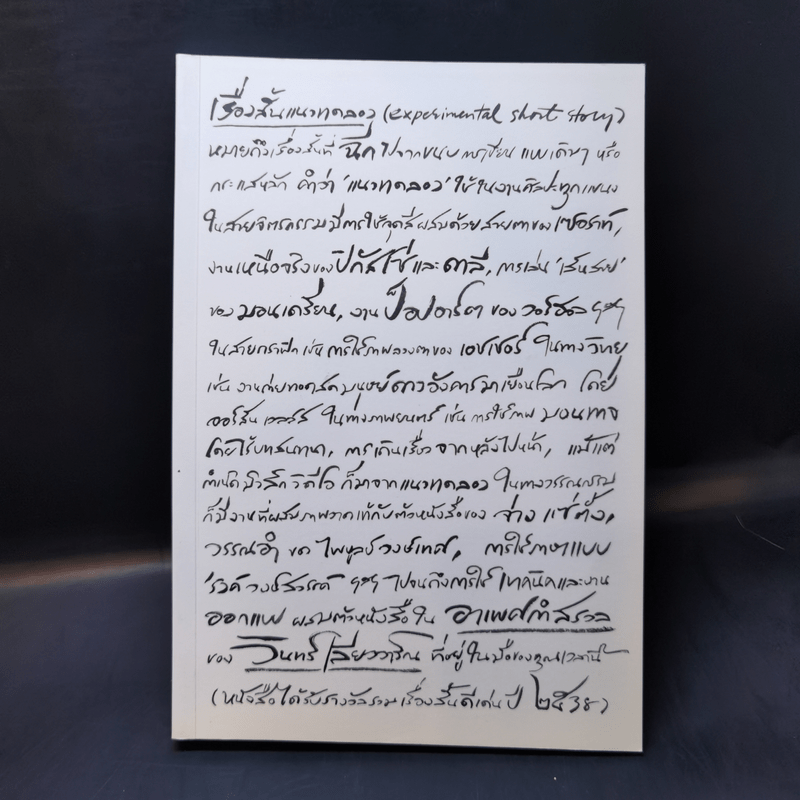 เรื่องสั้นแนวทดลอง (experimental short story)
หมายถึงเรื่องสั้นที่ ฉีก ไปจากขนบ การเขียน แบบเดิมๆ หรือ
กระแสหลัก คำว่า 'แนวทดลอง' ใช้ในงานศิลปะทุกแขนง
ในสายจิตรกรรมมีการใช้จุดสีผสมด้วยสายตาของเซอราท์,
งานเหนือจริงของปิกัสโซ่และดาลี, การเล่น 'เส้นสาย'
ของ มอนเดรียน, งาน ป็อปอาร์ต ของ วอร์ฮอล ฯลฯ
ในสายกราฟิก เช่น การใช้ภาพลวงตาของ เอชเชอร์ ในทางวิทยุ
เช่น งานถ่ายทอดสด มนุษย์ดาวอังคารมาเยือนโลก โดย
ออร์สัน เวลล์ส ในทางภาพยนตร์ เช่น การใช้ภาพ
โดยไร้บทสนทนา, การเดินเรื่อง จากหลังไปหน้า, แม้แต่
กำเนิดมิวสิก วิดีโอ ก็มาจากแนวทดลอง ในทางวรรณกรรม
ก็มีงานที่ผสมภาพวาดเข้ากับตัวหนังสือของ จ่าง แซ่ตั้ง,
วรรณรำ ของ ไพบูลย์ วงษ์เทศ, การใช้ภาษาแบบ
'รงค์ วงษ์สวรรค์ ฯลฯ ไปจนถึงการใช้ เทคนิคและงาน
ออกแบบ ผสมตัวหนังสือใน อาเพศกำสรวล
ของ วินทร์ เลียววาริณ ที่อยู่ในมือของคุณเวลานี้
(หนังสือได้รับรางวัลรวมเรื่องสั้นดีเด่นปี ๒๕๓๘)